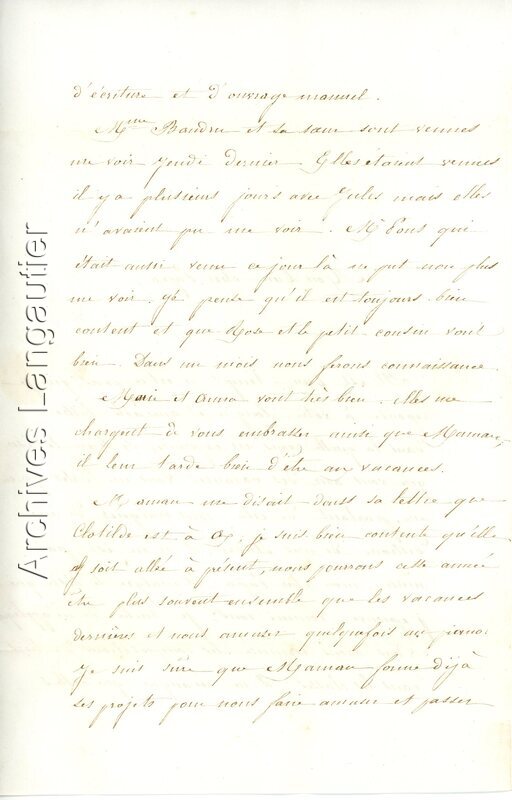 d'écriture et d'ouvrage manuel.
Mme Baudru et sa sœur sont venues
me voir Jeudi dernier. Elles étaient venues
il y a plusieurs jours avec Jules mais elles
n'avaient pu me voir. Mr Pons qui
était aussi venu ce jour là ne put non plus
me voir. Je pense qu'il est toujours bien
content et que Rose et le petit cousin vont
bien. Dans un mois nous ferons connaissance.
Marie et Anna vont très bien. elles me
chargent de vous embrasser ainsi que Maman,
il leur tarde bien d'être au vacances.
Maman me disait dans sa lettre que
Clotilde est à Ax. je suis bien contente qu'elle
y soit allée à présent, nous pourrons cette année
être plus souvent ensemble que les vacances
dernières et nous amuser quelquefois au piano.
Je suis sûre que Maman forme déjà
ses projets pour nous faire amuser et passer
Archives Langautier